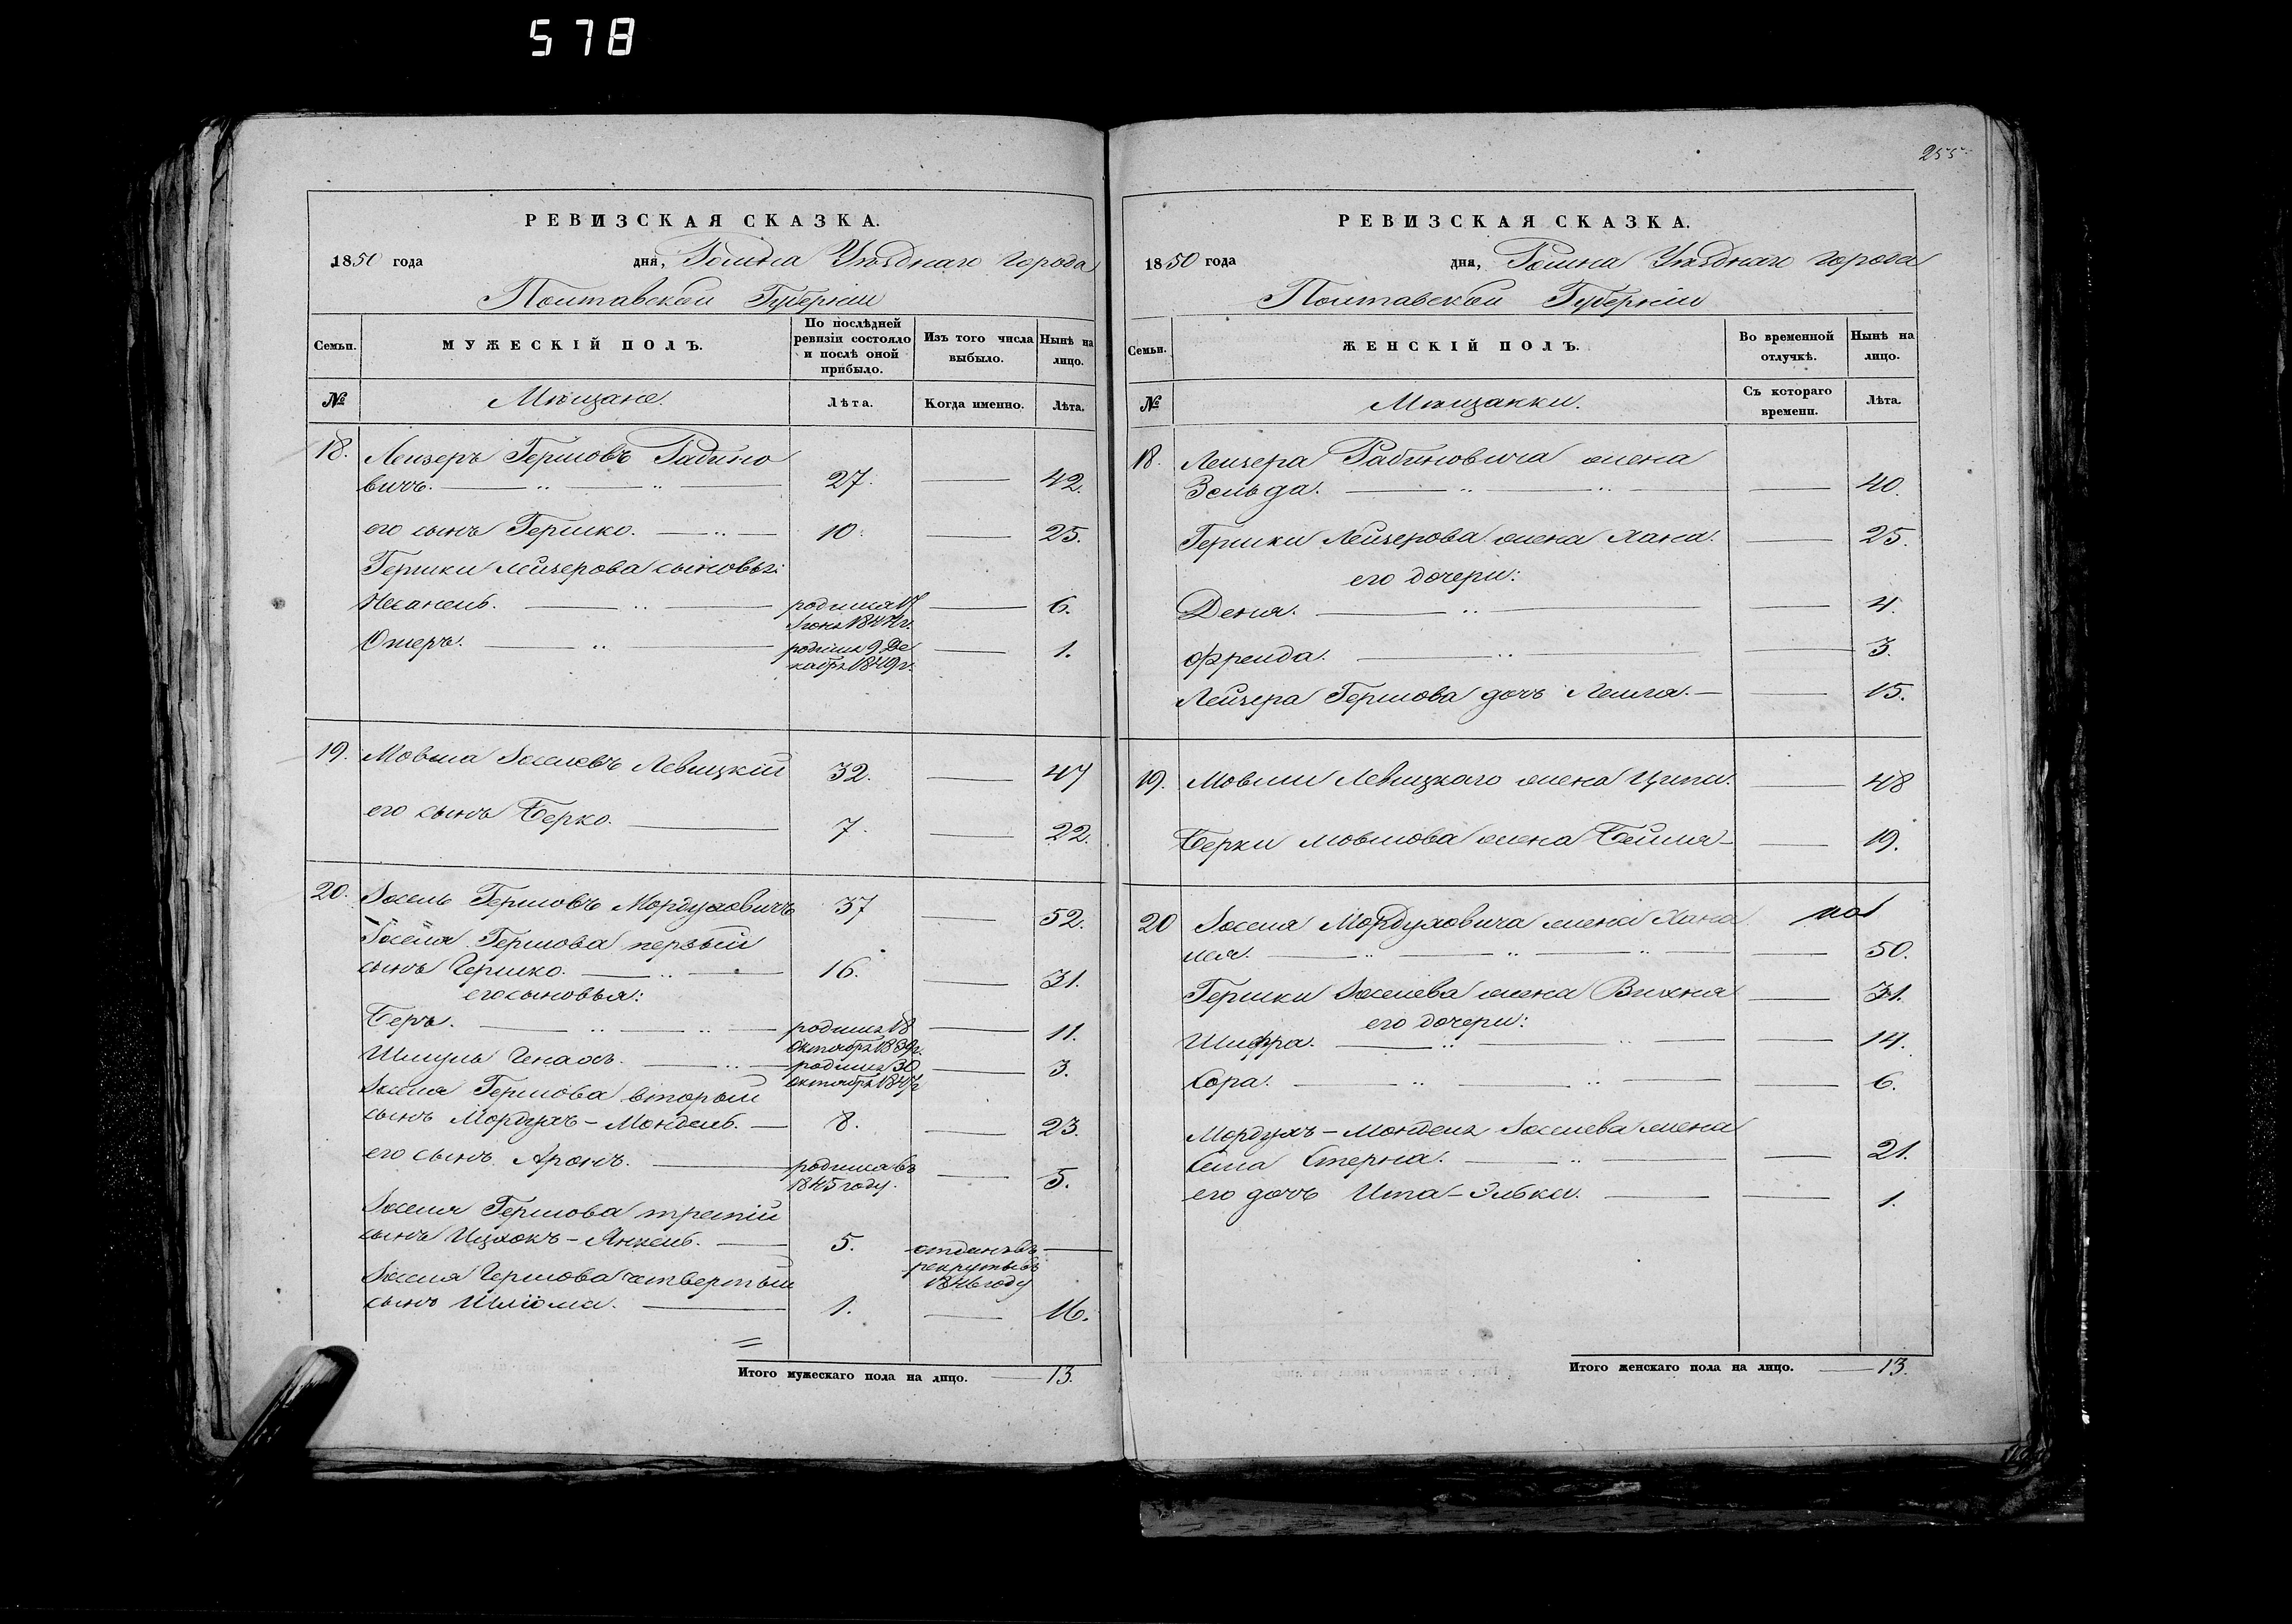 578
РЕВИЗСКАЯ СКАЗКА.
1850 года дня, Ромна Уѣзднаго города
Полтавской Губерніи
Семьи.
МУЖЕСКІЙ ПОЛЪ.
По послѣдней ревизіи состояло и послѣ оной прибыло.
Изъ того числа выбыло.
Нынѣ на лицо.
№ Мѣщане. Лѣта. Когда именно. Лѣта.
18. Лейзеръ Гершовъ Рабино
вичъ. 27. 42.
его сынъ Гершко. 10. 25.
Гершки Лейзерова сыновья:
Неханель. родился 17 6.
1844 г.
Ошеръ. родился 9 Де 1.
кабря 1849 г.
19. Мовша Левицкій 32. 47
его сынъ Берко. 7. 22.
20. Гершовъ Мордуховичъ 37 52.
Гершова первый
сынъ Гершко. 16. 31.
его сыновья:
Беръ. родился 18 11.
Октября 1839 г.
Шмуль родился 30 3.
Октября 1847 г
Гершова вторый
сынъ Мордухъ-Мендель. 8. 23.
его сынъ Аронъ. родился въ 5.
1845 году.
Гершова третій
сынъ Ицхокъ-Янкель. 5. отданъ въ
рекруты въ
1846 году
Гершова четвертый
сынъ Шліома. 1. 16.
Итого мужескаго пола на лицо. 13.
255
РЕВИЗСКАЯ СКАЗКА.
1850 года дня, Ромна Уѣзднаго города
Полтавской Губерніи
Семьи.
ЖЕНСКІЙ ПОЛЪ.
Во временной отлучкѣ.
Нынѣ на лицо.
№ Мѣщанки. Съ котораго времени. Лѣта.
18. Лейзера Рабиновича жена
Зельда. 40.
Гершки Лейзерова жена Хана. 25.
его дочери:
Деня. 4.
Фрейда. 3.
Лейзера Гершова дочь 15.
19. Мовши Левицкаго жена Ципа. 48
Берки Мовшова жена Бейля 19.
20 Мордуховича жена Хана
50.
Гершки жена Вихня 31.
его дочери:
Шифра. 14.
Сора. 6.
Мордухъ-Менделя жена
Стерна. 21.
его дочь Ита-Элька. 1.
Итого женскаго пола на лицо. 13.